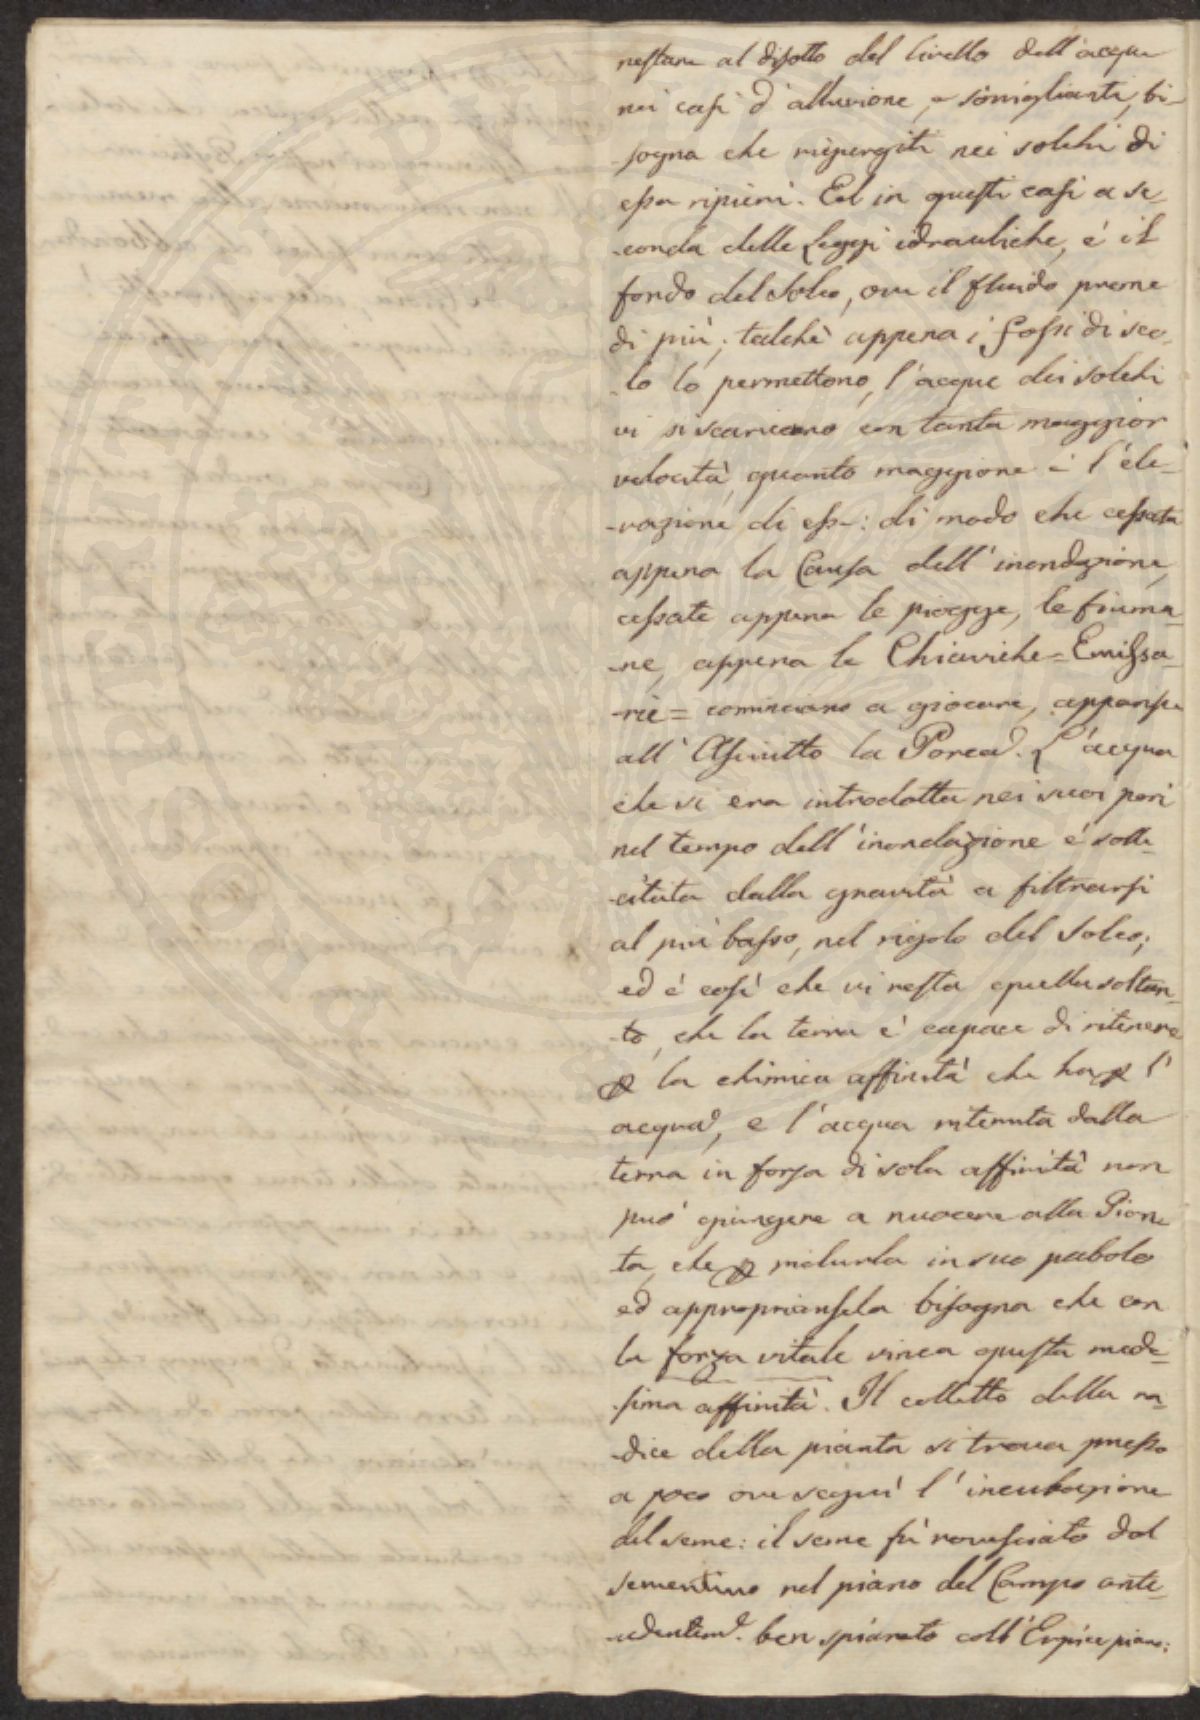 restare al disotto del livello dell'acque
nei casi d'alluvione, e somiglianti, bi-
-sogna che rispergiti nei solchi di
essa ripieni. Ed in questi casi a se-
-conda delle Leggi idrauliche, é il
fondo del Solco, ove il fluido preme
di più; talchè appena i Fossi di sco-
-lo lo permettono, l'acque dei solchi
vi si scaricano con tanta maggior
velocità, quanto maggiore é l'ele-
-vazione di esse: di modo che cessata
appena la Causa dell'inondazione,
cessate appena le piogge, le fiuma-
-ne, appena le Chiaviche = Emissa-
-rie = cominciano a giocare, apparisce
all'Asciutto la Porca. L'acqua
che si era introdotta nei suoi pori
nel tempo dell'inondazione é solle-
-citata dalla gravità a filtrarsi
al più basso, nel rigolo del Solco;
ed é così che vi resta quella soltan-
-to, che la terra é capace di ritenere
p la chimica affinità che ha p l'
acqua, e l'acqua ritenuta dalla
terra in forza di sola affinità non
può giungere a nuocere alla Pian-
ta, che p ridurla in suo pabolo
ed appropriarsela bisogna che con
la forza vitale vinca questa mede-
-sima affinità. Il colletto della ra-
-dice della pianta si trova presso
a poco ove seguì l'incubazione
del seme: il seme fù rovesciato dal
sementino nel piano del Campo ante-
-cedentem. ben spianato coll'Erpice piano: